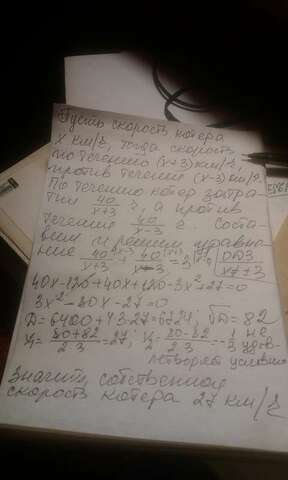 Пусть скорость катера
x км/ч, тогда скорость
по течению (x+3) км/ч
против течения (x-3) км/ч.
По течению катер затра-
тил 40/x+3 ч, а против
течения 40/x-3 ч. Соста-
вим и решим уравне-
ние 40/x+3 + 40/x-3 = 3
40x-120+40x+120-3x²+27=0
3x²-80x-27=0
D=6400+4·3·27=6724; √D=82
x₁=80+82/2·3=27; x₂=80-82/2·3=-1/3 не
удов-
летворяет условию
Значит, собственная
скорость катера 27 км/ч